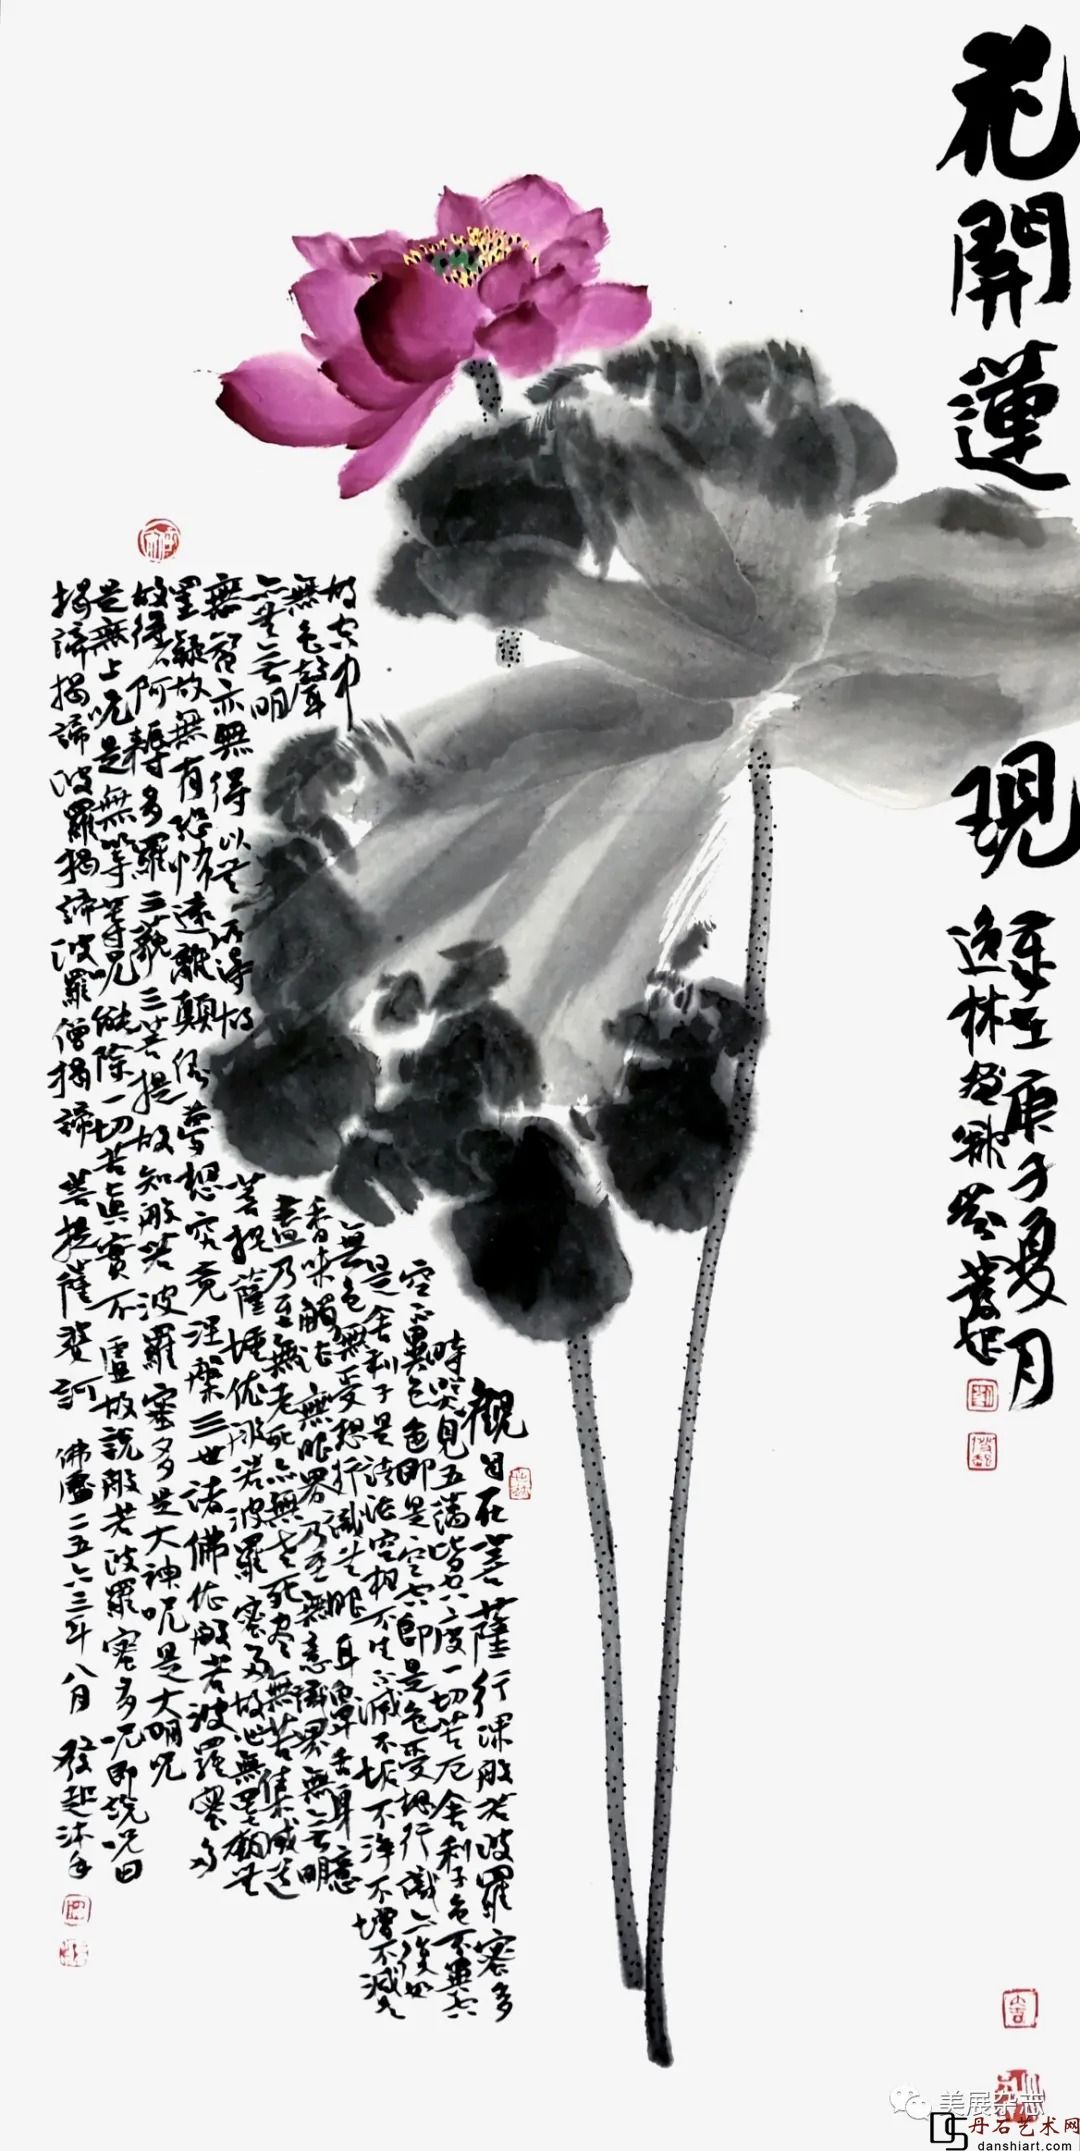 花開蓮現
庚子夏月
逸林
觀自在菩薩行深般若波羅密多
時照見五蘊皆空度一切苦厄舍利子色不異空
空不異色色即是空空即是色受想行識亦復如
是舍利子是諸法空相不生不滅不垢不淨不增不減是
故空中無色無受想行識無眼耳鼻舌身意
無色聲香味觸法無眼界乃至無意識界無無明
亦無無明盡乃至無老死亦無老死盡無苦集滅道
無智亦無得以無所得故菩提薩埵依般若波羅密多故心無罣礙無
罣礙故無有恐怖遠離顛倒夢想究竟涅槃三世諸佛依般若波羅密多
故得阿耨多羅三藐三菩提故知般若波羅密多是大神呪是大明呪
是無上呪是無等等呪能除一切苦真實不虛故說般若波羅密多呪即說呪曰
揭諦揭諦波羅揭諦波羅僧揭諦菩提薩婆訶 佛曆二五六三年八月 發起沐手
美展杂志
丹石艺术网
danshiart.com